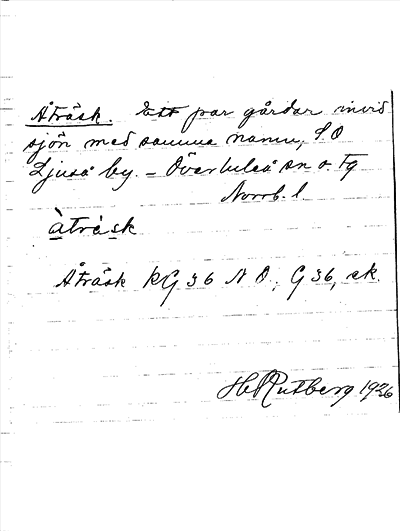 Åträsk. Ett par gårdar invid
sjön med samma namn, S.O
Ljuså by. – Överluleå sn o. Tg
Norrb. l.
àtràsk
Åträsk KG 36 N O; G 36, ek.
H Rutberg 1926